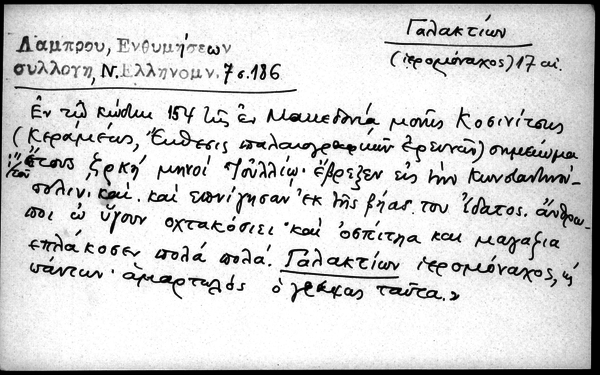 Γαλακτίων
(ιερομόναχος) 17 αι.
Λαμπρου, Ενθυμήσεων
συλλογη, Ν. Ελληνομν. 7 σ. 186
Ἐν τῷ κώδικι 154 τῆς ἐν Μακεδονίᾳ μονῆς Κοσινίτσης
(Κεραμέως, Ἔκθεσις παλαιογραφικῶν ἐρευνῶν) σημείωμα
"ἔτους ζρκη μηνοί Ἰουλλίῳ· ἔβρεξεν εἰς τὴν Κωνσταντινού-
του
πολιν· καὶ · καὶ επνίγησαν ἐκ τῆς βήας του ὕδατος· ἄνθρω-
ποι ω ὕγουν οχτακόσιει· καὶ ὀσπίτηα και μαγαζια
επλάκοσεν πολά πολά. Γαλακτίων ιερομόναχος, κς
πάντων· ἁμαρτωλός ὁ γράψας ταῦτα.»